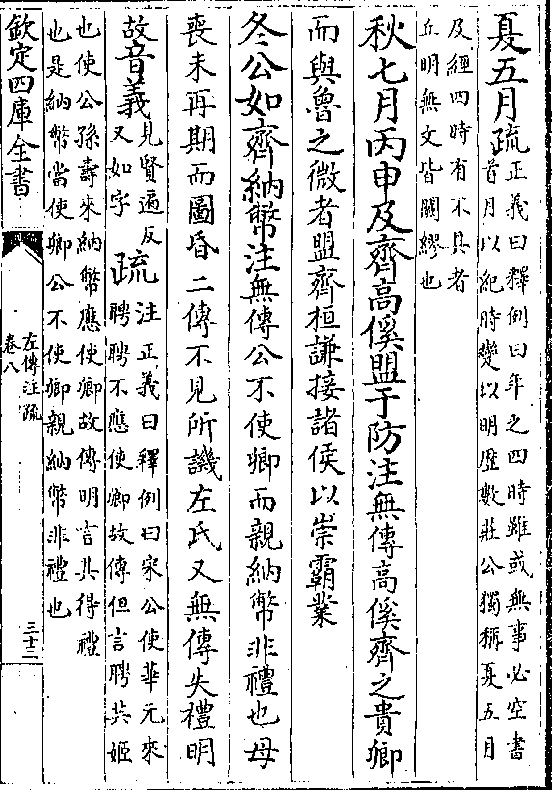 夏五月疏正義曰釋例曰年之四時雖或無事必空書
首月以紀時變以明歷數莊公獨稱夏五月
及經四時有不具者
丘明無文皆闕繆也
秋七月丙申及齊高傒盟于防注無傳高傒齊之貴卿
而與魯之微者盟齊桓謙接諸侯以崇霸業
冬公如齊納幣注無傳公不使卿而親納幣非禮也母
喪未再期而圖昏二傳不見所譏左氏又無傳失禮明
故音義見賢遍反
又如字
疏注正義曰釋例曰宋公使華元來
聘聘不應使卿故傳但言聘共姬
也使公孫壽來納幣應使卿故傳明言其得禮
也是納幣當使卿公不使卿親納幣非禮也
欽定四庫全書
左傳注疏
卷八
三十二